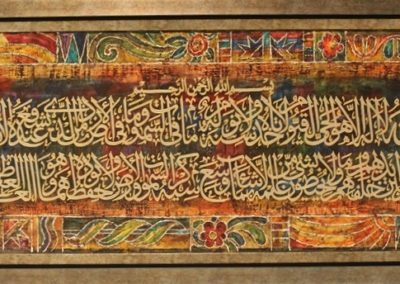 بسم الله الرحمن الرحيم
لا اله الا هو الحي القيوم لا تأخذه سنة ولا نوم له ما في السموات وما في الارض من ذا الذي يشفع عنده الا
وما خلفهم ولا يحيطون بشيء من علمه الا بما شاء وسع كرسيه السموات والارض ولا يؤده حفظهما وهو العلي العظيم